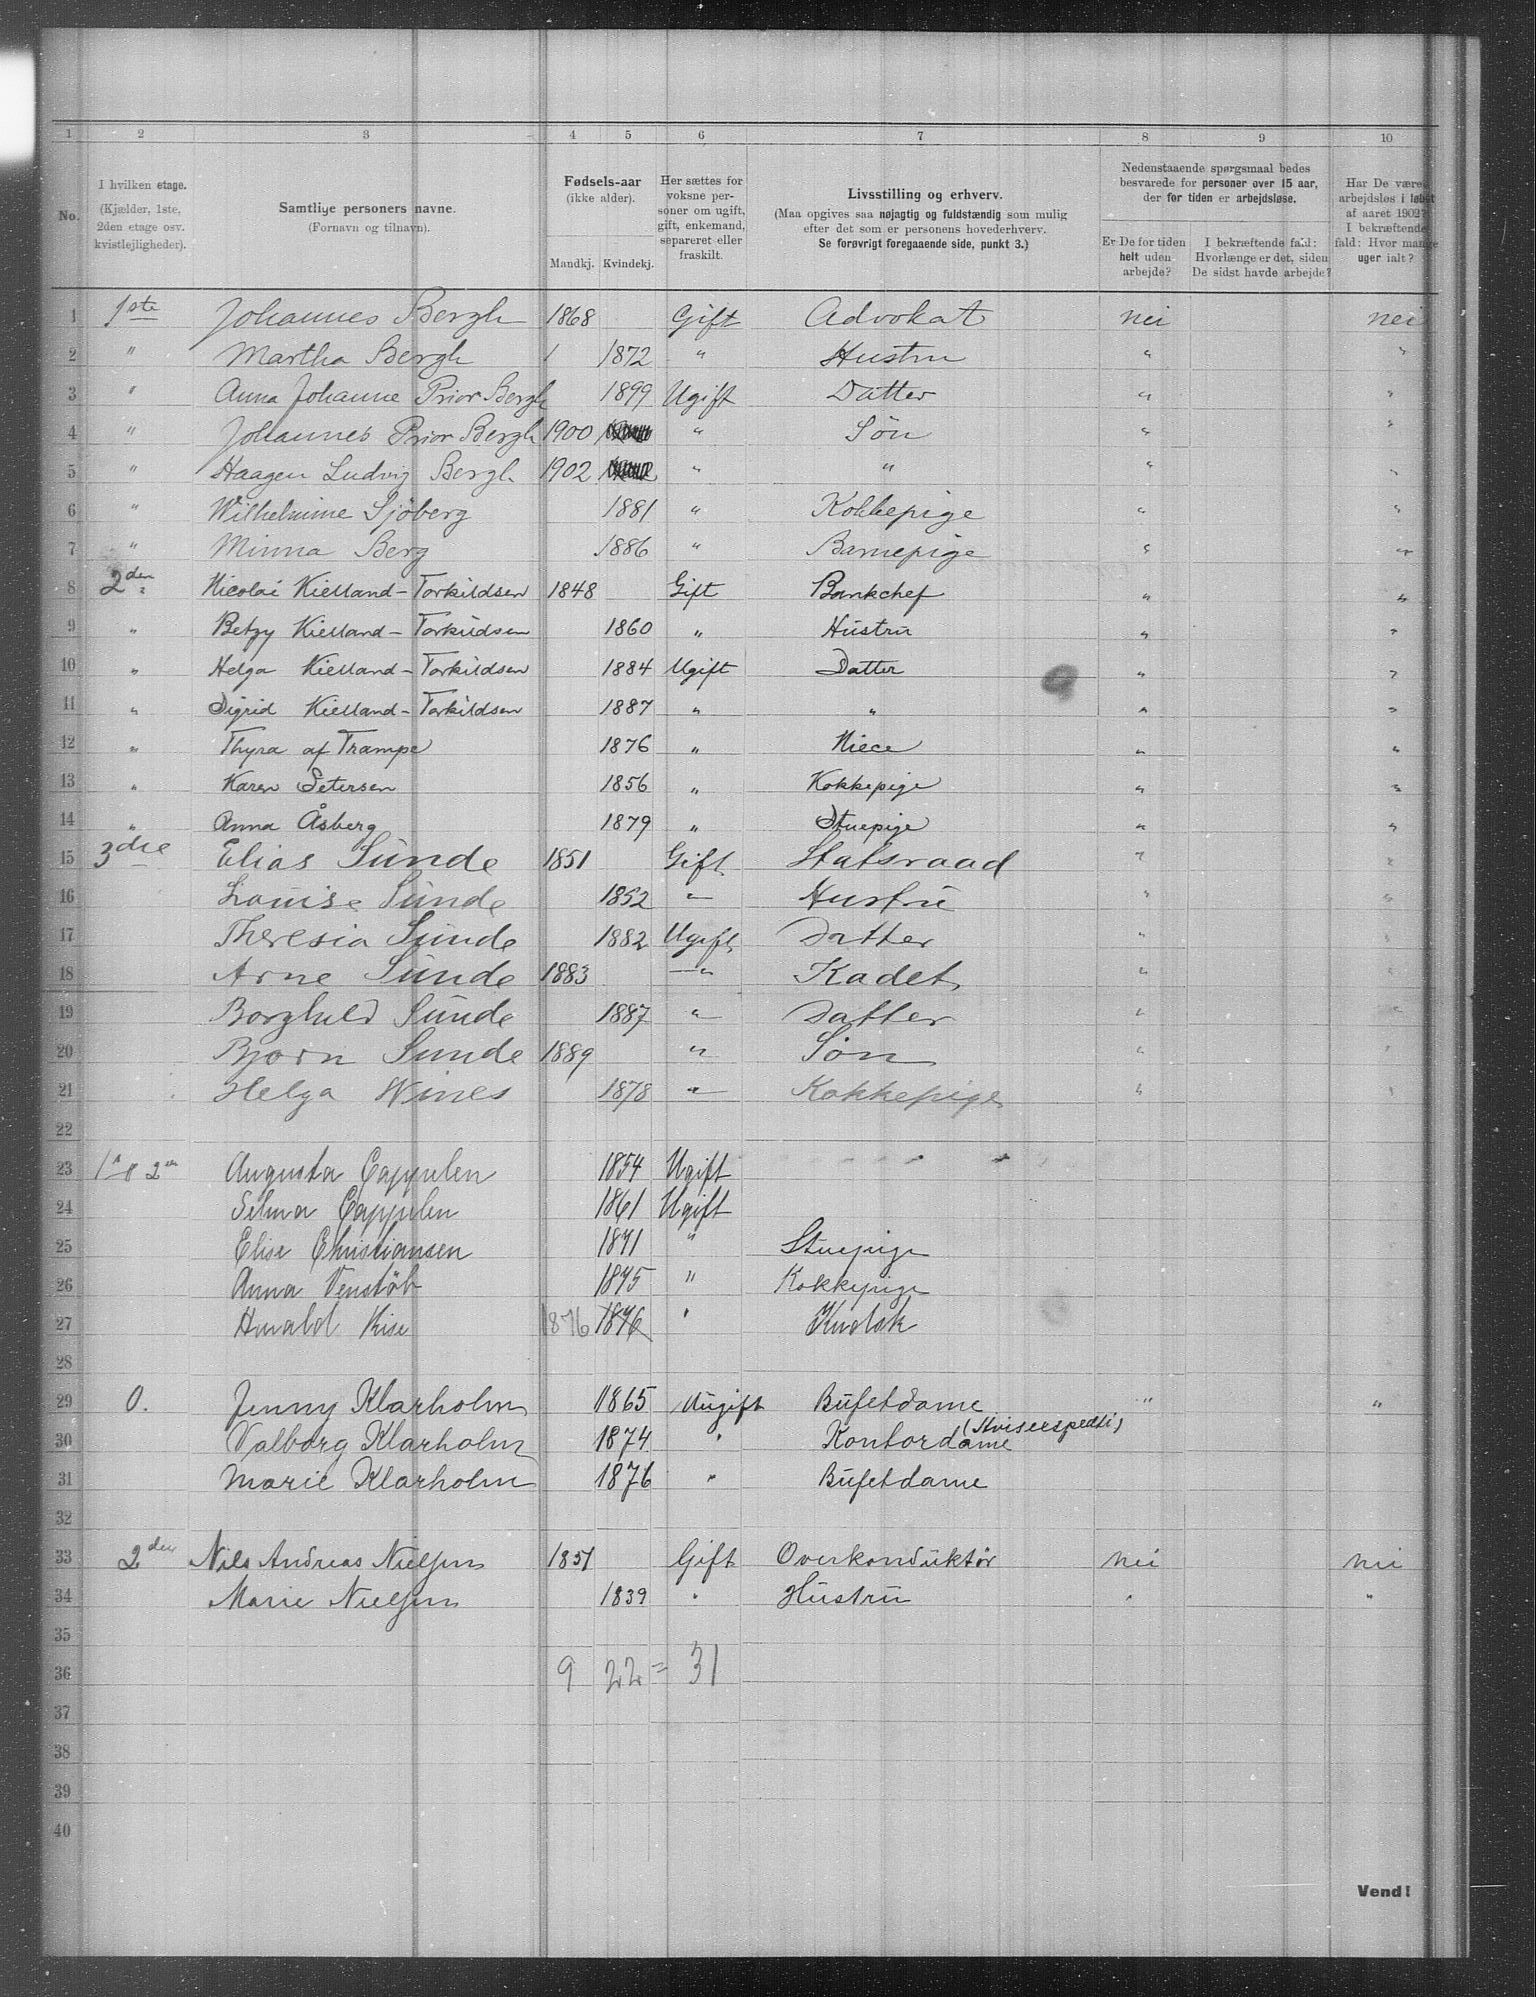 1 2 3 4 5 6 7 8 9 10
No.
I hvilken etage.
(Kjælder, 1ste,
2den etage osv.
kvistlejligheder).
Samtliye personers navne.
(Fornavn og tilnavn).
Fødsels-aar
(ikke alder).
Mandkj. Kvindekj.
Her sættes for
voksne per-
soner om ugift,
gift, enkemand,
separeret eller
fraskilt.
Livsstilling og erhverv.
(Maa opgives saa nøjagtig og fuldstændig som mulig
efter det som er personens hovederhverv.
Se forøvrigt foregaaende side, punkt 3.)
Nedenstaaende spørgsmaal bedes
besvarede for personer over 15 aar,
der for tiden er arbejdsløse.
Er De for tiden
helt uden
arbejde?
I bekræftende fald:
Hvorlænge er det, siden
De sidst havde arbejde?
Har De været
arbejdsløs i løbet
af aaret 1902?
I bekræftende
fald: Hvor mange
uger ialt?
1 1ste Johannes Bergh 1868 Gift Advokat nei nei
2 " Martha Bergh 1872 " Hustru " "
3 " Anna Johanne Prior Bergh 1899 Ugift Datter " "
4 " Johannes Prior Bergh 1900 " Søn " "
5 " Haagen Ludvig Bergh 1902 " " " "
6 " Wilhelmine Sjöberg 1881 " Kokkepige " "
7 " Minna Berg 1886 " Barnepige " "
8 2den Nicolai Kielland-Torkildsen 1848 Gift Bankchef " "
9 " Betzy Kielland-Torkildsen 1860 " Hustru " "
10 " Helga Kielland-Torkildsen 1884 Ugift Datter " "
11 " Sigrid Kielland-Torkildsen 1887 " " " "
12 " Thyra af Trampe 1876 " Niece " "
13 " Karen Petersen 1856 " Kokkepige " "
14 " Anna Åsberg 1879 " Stuepige " "
15 3die Elias Sunde 1851 Gift Statsraad " "
16 Louise Sunde 1852 " Hustru " "
17 Theresia Sunde 1882 Ugift Datter " "
18 Arne Sunde 1883 " Kadet " "
19 Borghild Sunde 1887 " Datter " "
20 Bjørn Sunde 1889 " Søn " "
21 Helga Wines 1878 " Kokkepige " "
22
23 Augusta Cappelen 1854 Ugift
24 Selma Cappelen 1861 Ugift
25 Elise Christiansen 1871 " Stuepige
26 Anna Venstöb 1875 " Kokkepige
27 Kise 1876 1876 "
28
29 0. Jenny Klarholm 1865 Ungift Bufetdame " "
30 Valborg Klarholm 1874 " Kontordame
31 Marie Klarholm 1876 " Bufetdame
32
33 2den Nils Andreas Nielsen 1851 Gift Overkonduktör nei nei
34 Marie Nielsen 1839 " Hustru " "
35
36 9 22 = 31
37
38
39
40
Vend!